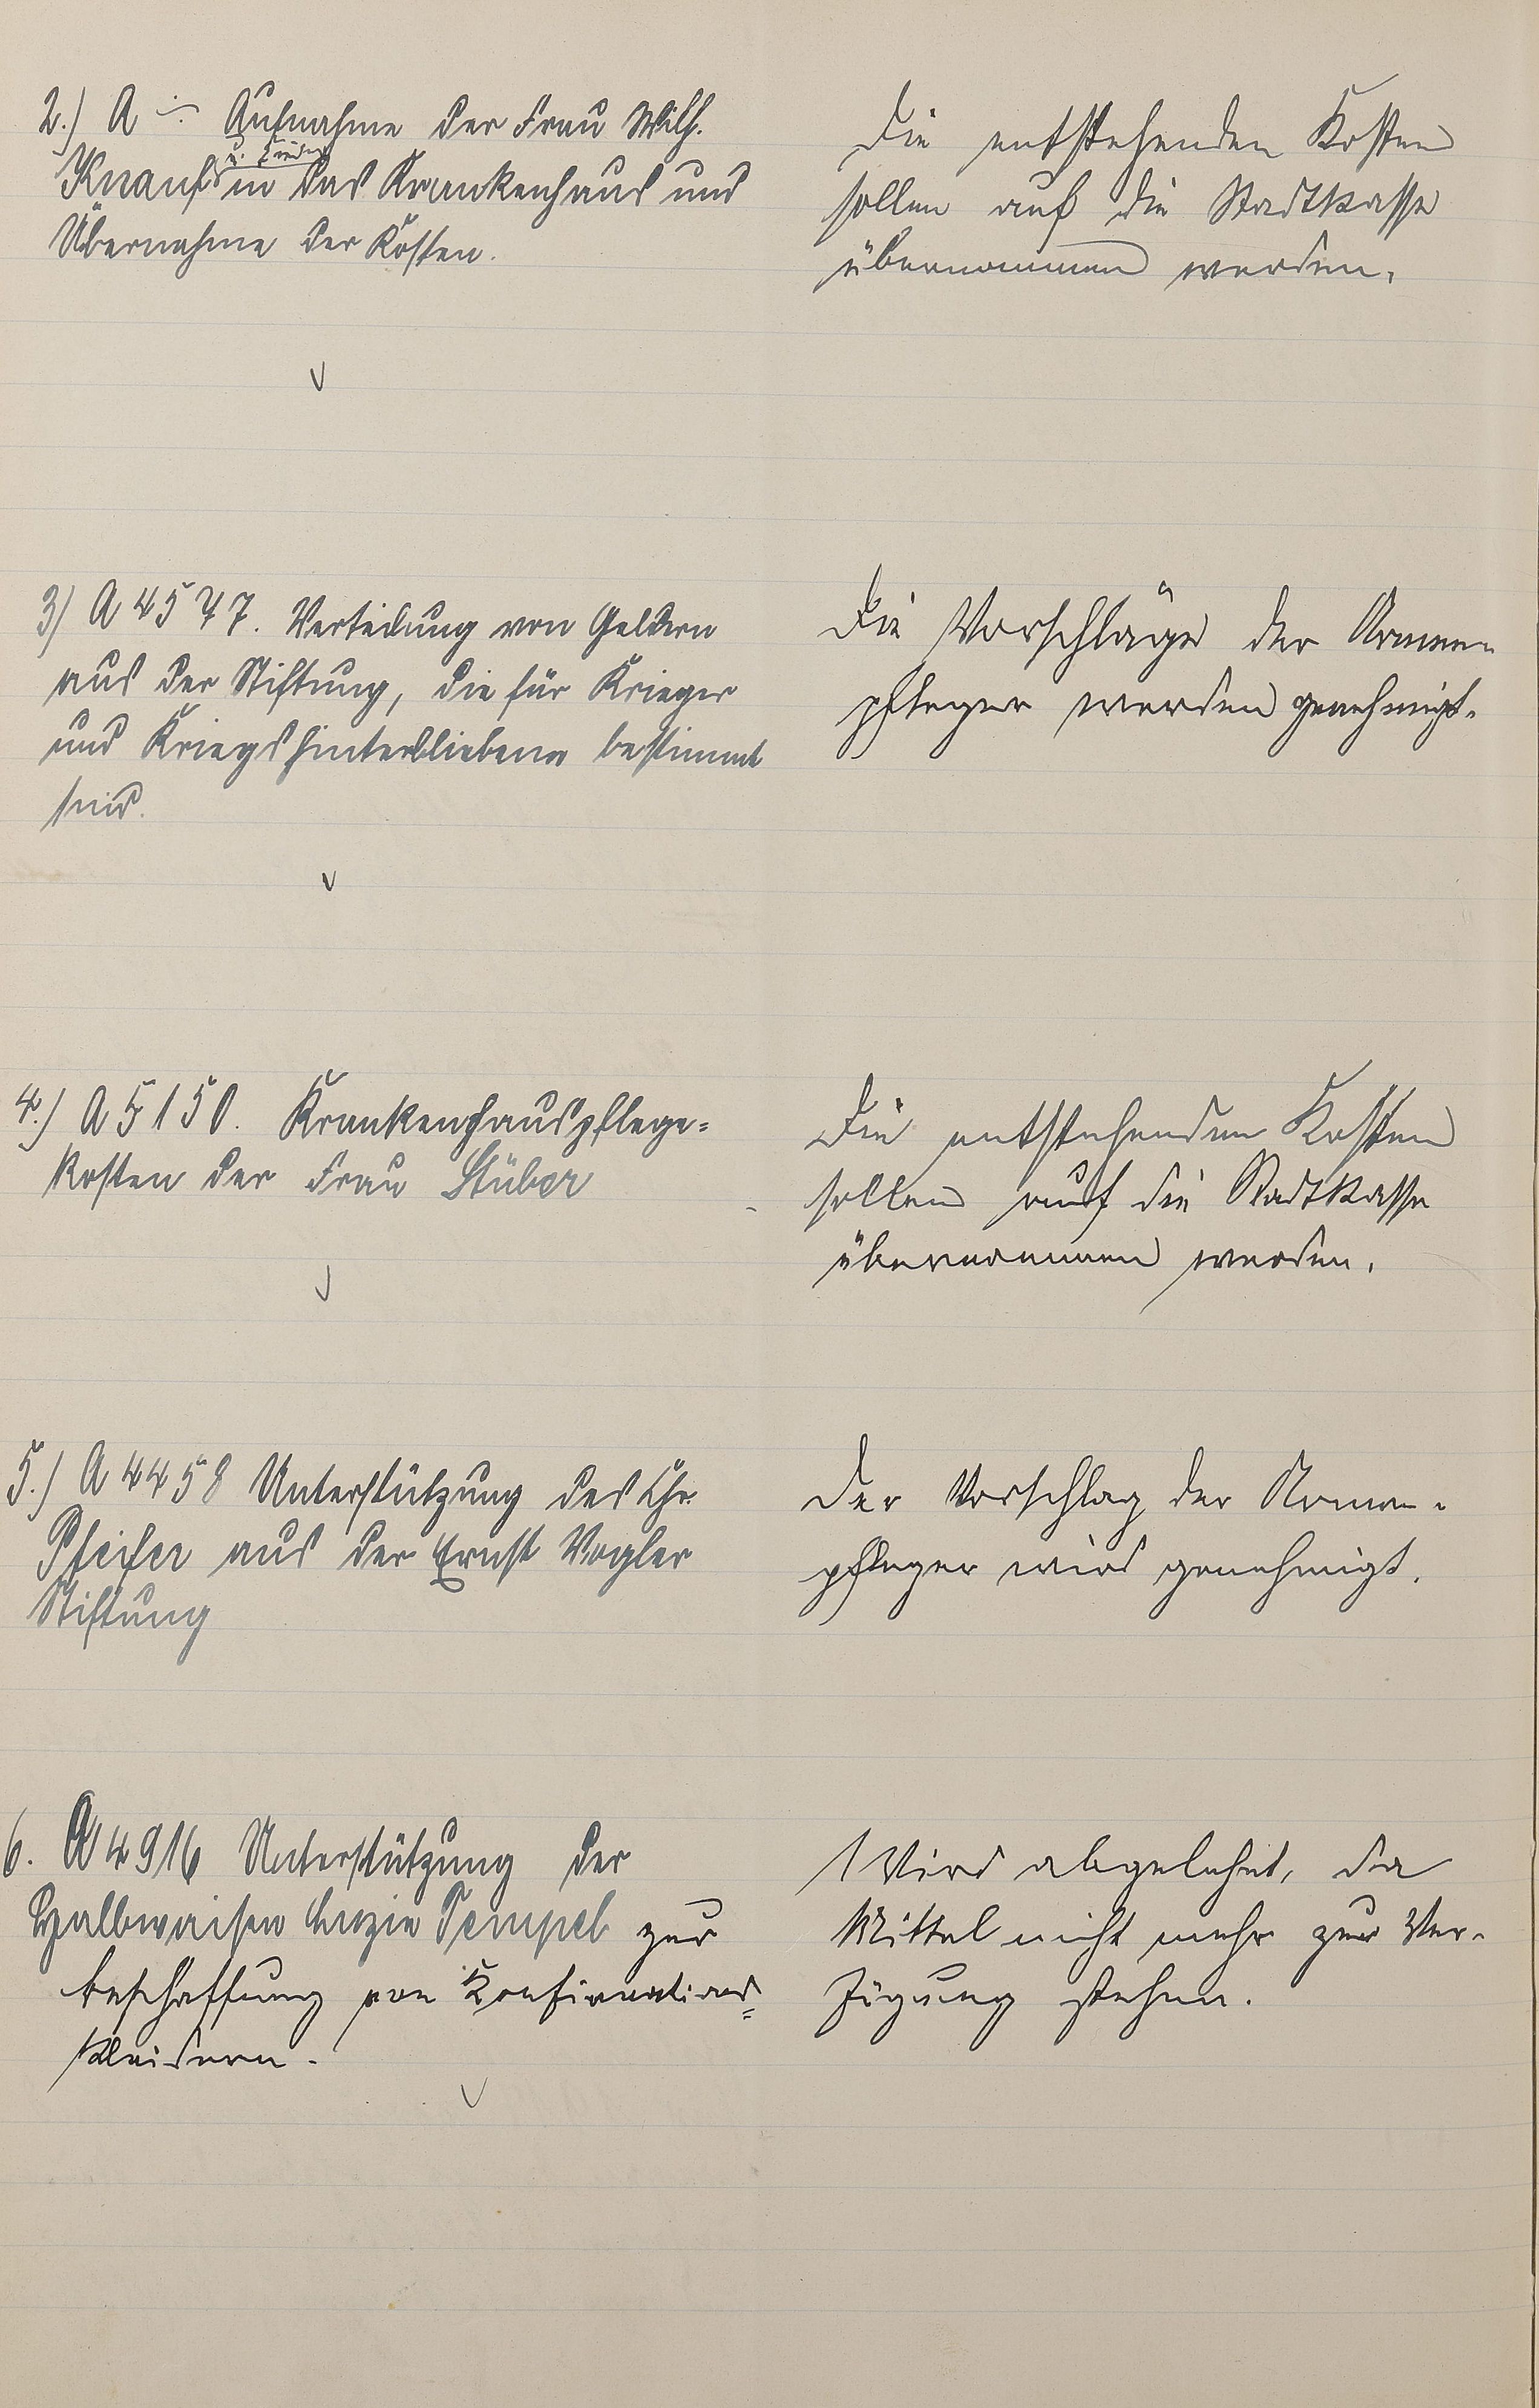 2.) A ·/. Aufnahme der Frau Wilh.
u. Kinder
Knauf in das Krankenhaus und
Übernahme der Kosten.
Die entstehenden Kosten
sollen auf die Stadtkasse
übernommen werden.
3) A 4577. Verteilung von Geldern
aus der Stiftung, die für Krieger
und Kriegshinterbliebene bestimmt
sind.
Die Vorschläge der Armen-
pfleger werden genehmigt.
4.) A 5150. Krankenhauspflege=
kosten der Frau Stüber
Die entstehenden Kosten
sollen auf die Stadtkasse
übernommen werden.
5.) A 4458 Unterstützung des Chr.
Pfeifer aus der Ernst Vogler
Stiftung
Der Vorschlag der Armen-
pfleger wird genehmigt.
6. A 4916 Unterstützung der
Halbwaisen Luzie Tempel zur
Beschaffung von Konfirmations=
kleidern.
Wird abgelehnt, da
Mittel nicht mehr zur Ver-
fügung stehen.